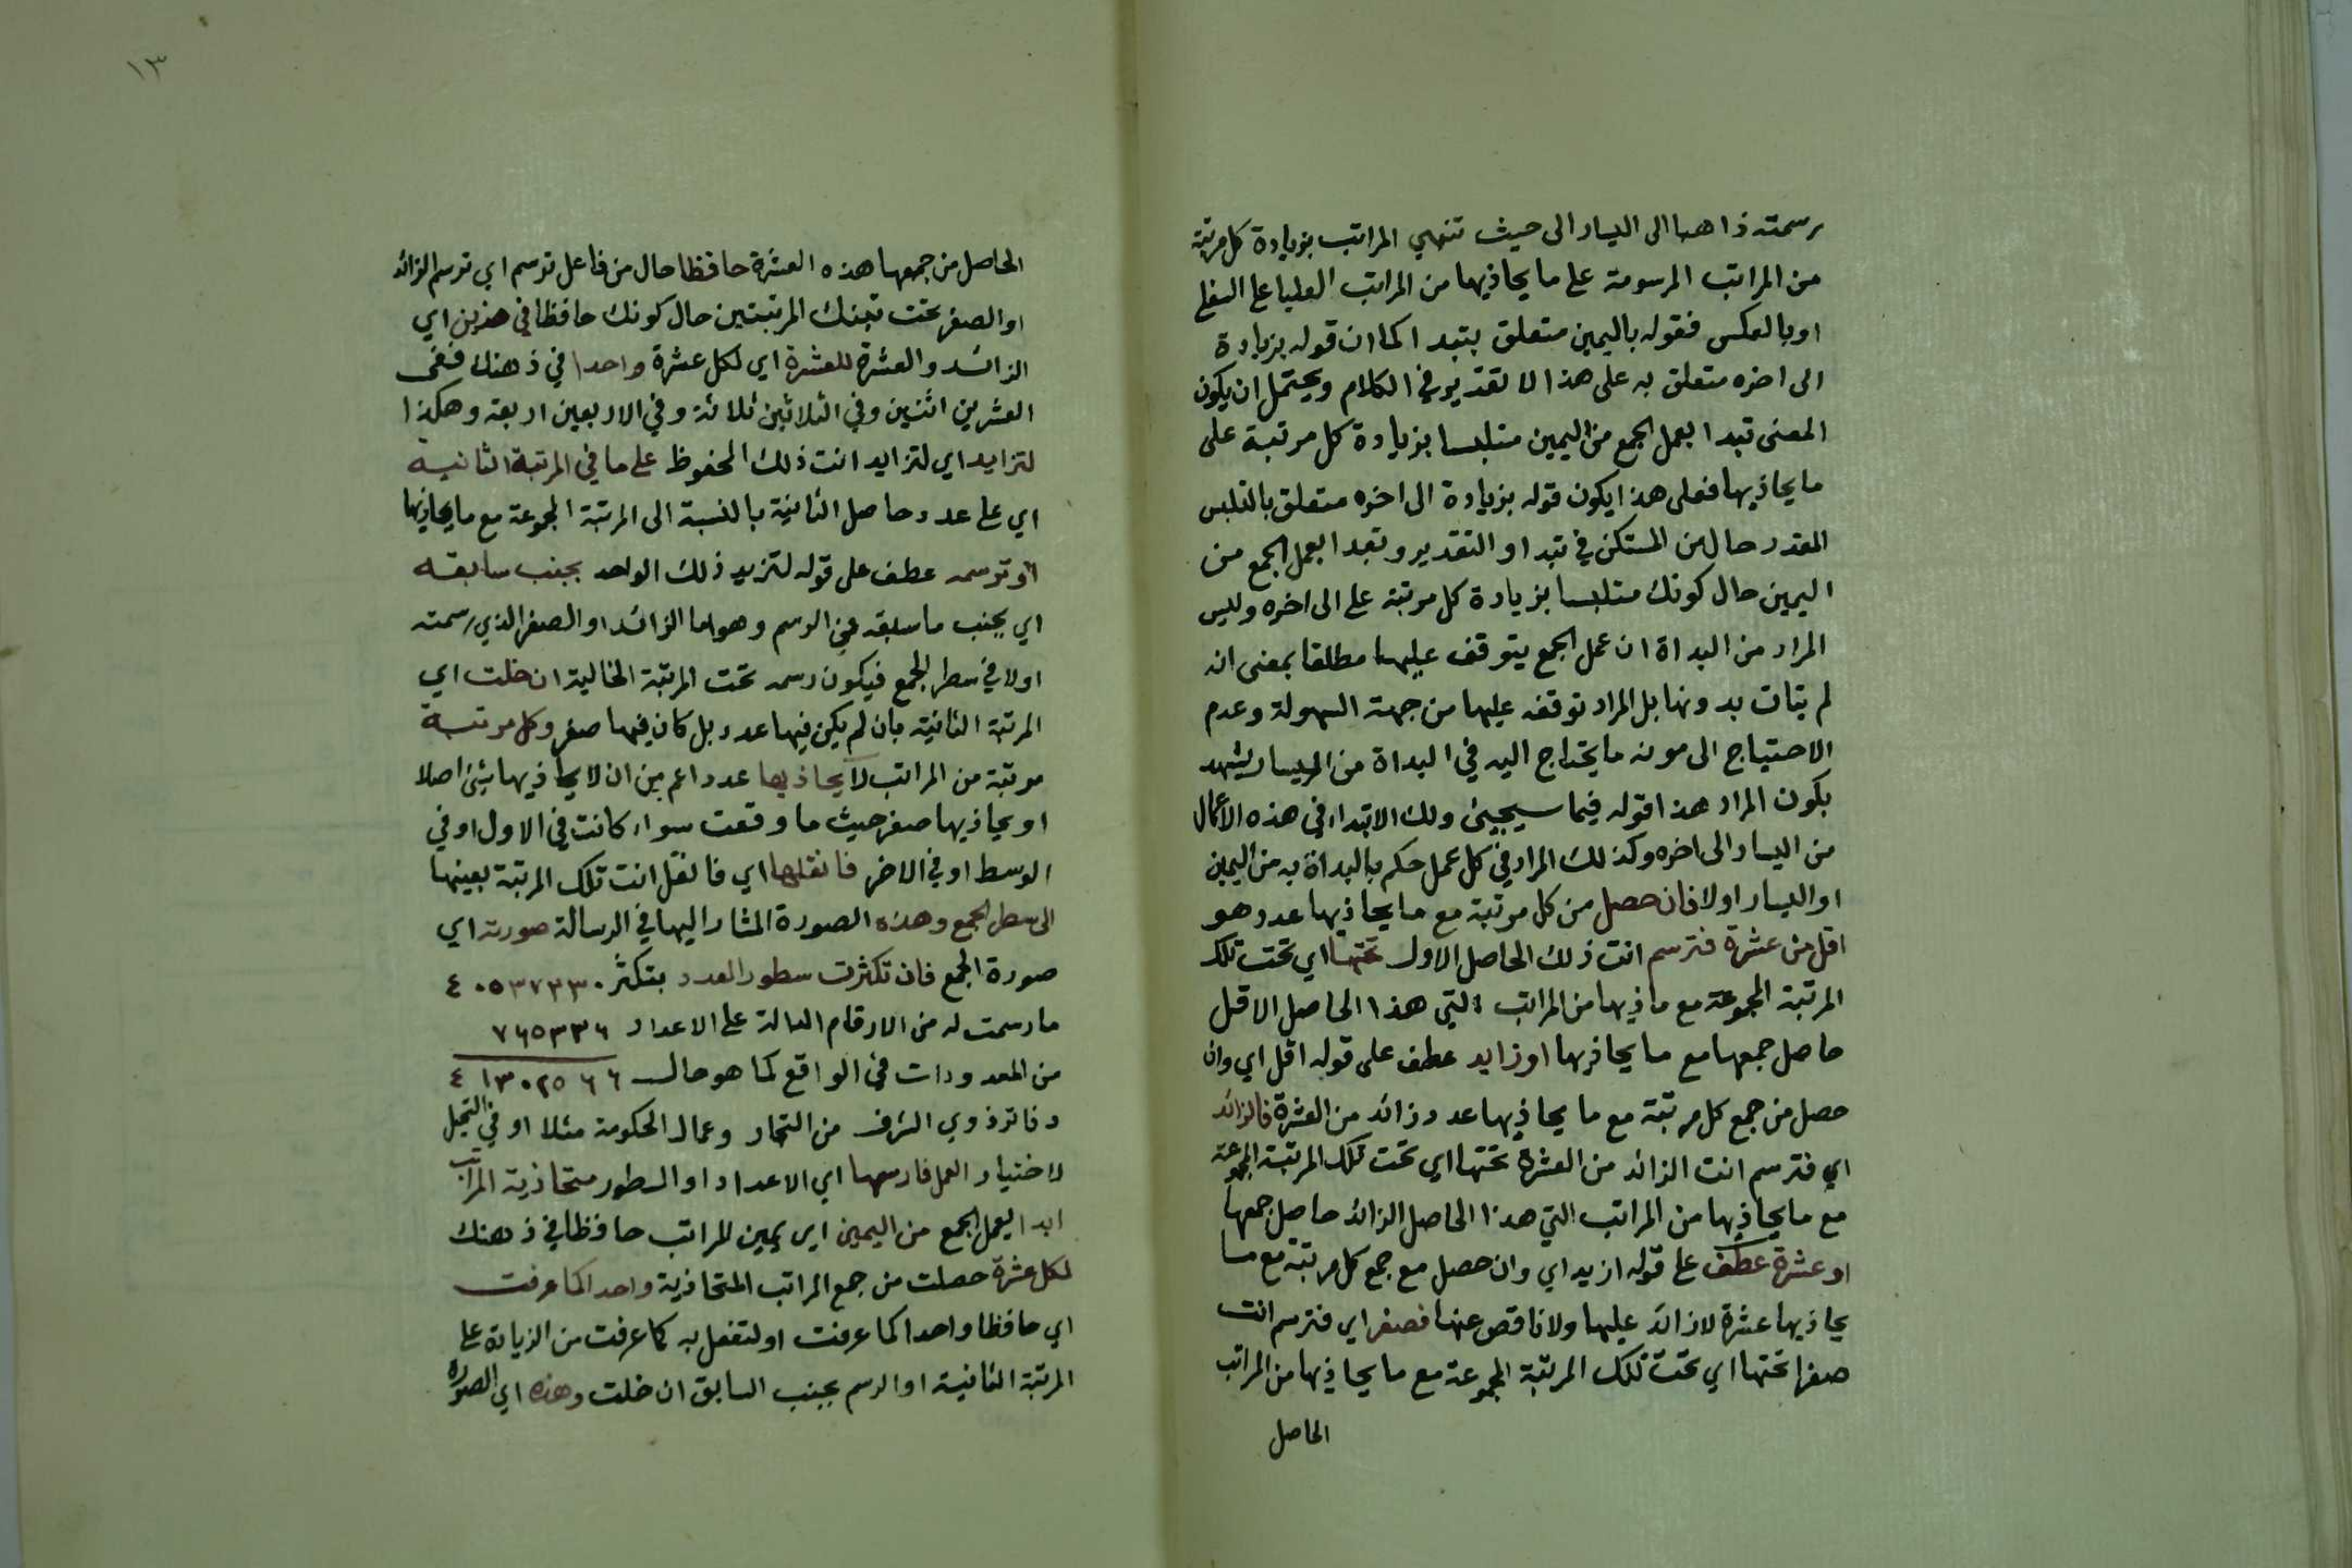 رسمته ذاهبا الى اليسار الى حيث تنتهي المراتب بزيادة كل مرتبة
من المراتب المرسومة على ما يحاذيها من المراتب العليا على السفلى
او بالعكس فقوله باليمين متعلق بتبدا كما ان قوله بزيادة
الى اخره متعلق به على هذا لا تقدير في الكلام ويحتمل ان يكون
المعنى تبدا بعمل الجمع من اليمين متلبسا بزيادة كل مرتبة على
ما يحاذيها فعلى هذا يكون قوله بزيادة الى اخره متعلق بالتلبس
المقدر حال من المستكن في تبدا والتقدير وتبدا بعمل الجمع من
اليمين حال كونك متلبسا بزيادة كل مرتبة على الى اخره وليس
المراد من البداة ان عمل الجمع يتوقف عليها مطلقا بمعنى انه
لم يتات بدونها بل المراد توقفه عليها من جهة السهولة وعدم
الاحتياج الى مونه ما يحتاج اليه في البداة من اليسار يشهد
بكون المراد هذا قوله فيما سيجيئ ولك الابتداء في هذه الاعمال
من اليسار الى اخره وكذلك المراد في كل عمل حكم بالبداة به من اليمين
او اليسار اولا فان حصل من كل مرتبة مع ما يحاذيها عدد هو
اقل من عشرة فترسم انت ذلك الحاصل الاول تحتها اي تحت تلك
المرتبة المجموعة مع ماذيها من المراتب التي هذا الحاصل الاقل
حاصل جمعها مع ما يحاذيها او زايد عطف على قوله اقل اي وان
حصل من جمع كل مرتبة مع ما يحاذيها عدد زائد من العشرة فالزائد
اي فترسم انت الزائد من العشرة تحتها اي تحت تلك المرتبة المجموعة
مع ما يحاذيها من المراتب التي هذا الحاصل الزائد حاصل جمعها
او عشرة عطف على قوله ازيد اي وان حصل مع جمع كل مرتبة مع ما
يحاذيها عشرة لا زائد عليها ولا ناقص عنها فصفر اي فترسم انت
صفرا تحتها اي تحت تلك المرتبة المجموعة مع ما يحاذيها من المراتب
الحاصل
١٣
الحاصل من جمعها هذه العشرة حافظا حال من فاعل ترسم اي ترسم الزائد
او الصفر تحت تينك المرتبتين حال كونك حافظا في هذين اي
الزائد والعشرة للعشرة اي لكل عشرة واحدا في ذهنك ففى
العشرين اثنين وفي الثلاثين ثلاثة وفي الاربعين اربعة وهكذا
لتزايد اي لتزايد انت ذلك المحفوظ على ما في المرتبة الثانية
اي على عدد حاصل الثانية بالنسبة الى المرتبة المجموعة مع ما يحاذيها
او ترسمه عطف على قوله لتزيد ذلك الواحد بجنب سابقه
اي بجنب ما سبقه في الرسم وهو اما الزائد او الصفر الذي رسمته
اولا في سطر الجمع فيكون رسمه تحت المرتبة الخالية ان خلت اي
المرتبة الثانية بان لم يكن فيها عدد بل كان فيها صفر وكل مرتبة
مرتبة من المراتب لا يحاذيها عدد اعم من ان لا يحاذيها شئ اصلا
او يحاذيها صفر حيث ما وقعت سواء كانت في الاول او في
الوسط او في الاخر فانقلها اي فانقل انت تلك المرتبة بعينها
الى سطر الجمع وهذه الصورة المشار اليها في الرسالة صورته اي
صورة الجمع فان تكثرت سطور العدد بتكثر ٤٠٥٣٧٢٣٠
ما رسمت له من الارقام الدالة على الاعداد ٧٦٥٣٣٦
من المعدودات في الواقع كما هو حال ٤١٣٠٢٥٦٦
دفاتر ذوي الشرف من التجار وعمال الحكومة مثلا او في التخيل
لاختيار العمل فارسمها اي الاعداد او السطور متحاذية المراتب
ابدا بعمل الجمع من اليمين اي يمين المراتب حافظا في ذهنك
لكل عشرة حصلت من جمع المراتب المتحاذية واحدا كما عرفت
اي حافظا واحدا كما عرفت او لتفعل به كما عرفت من الزيادة على
المرتبة الثانية او الرسم بجنب السابق ان خلت وهذه اي الصورة